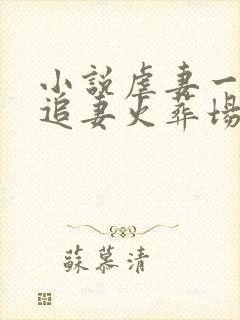 小説虐妻一
追妻火葬場
蘇慕清